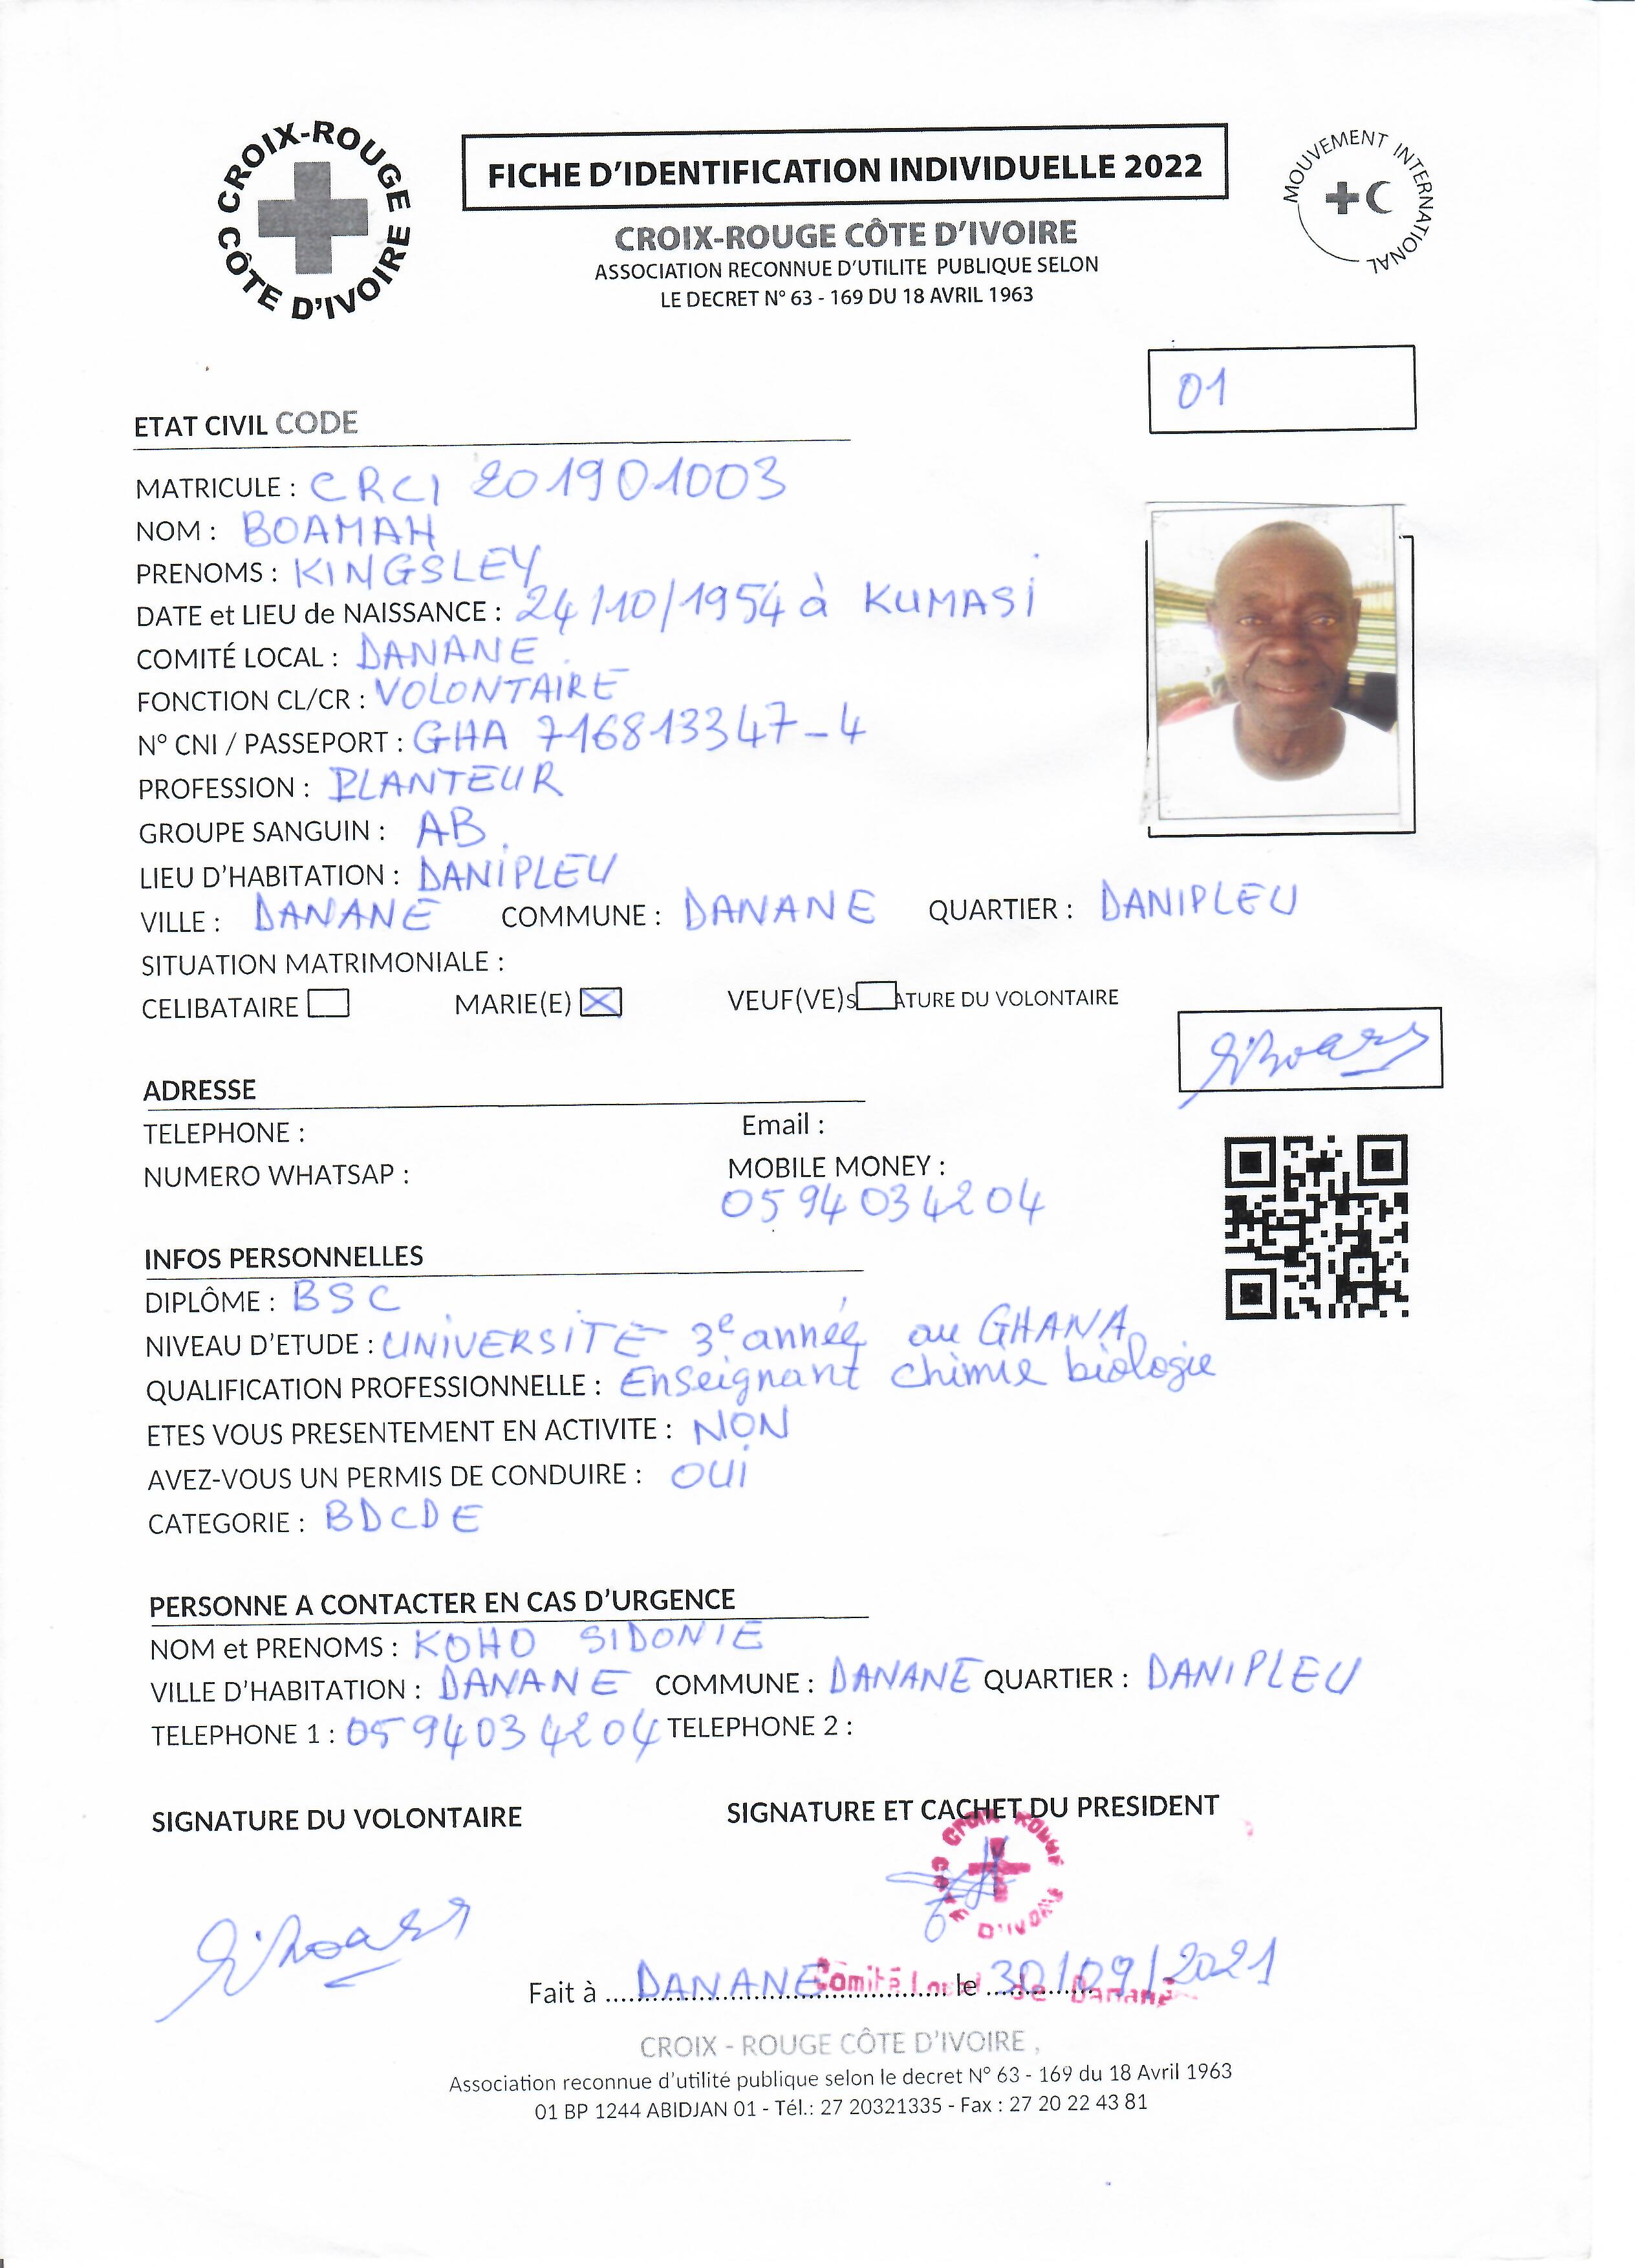 CROIX-ROUGE CÔTE D'IVOIRE
FICHE D'IDENTIFICATION INDIVIDUELLE 2022
MOUVEMENT INTERNATIONAL
CROIX-ROUGE CÔTE D'IVOIRE
ASSOCIATION RECONNUE D'UTILITE PUBLIQUE SELON
LE DECRET N° 63 - 169 DU 18 AVRIL 1963
01
ETAT CIVIL CODE
MATRICULE : CRCI 201901003
NOM : BOAMAH
PRENOMS : KINGSLEY
DATE et LIEU de NAISSANCE : 24/10/1954 à KUMASI
COMITÉ LOCAL : DANANE
FONCTION CL/CR : VOLONTAIRE
N° CNI / PASSEPORT : GHA 716813347-4
PROFESSION : PLANTEUR
GROUPE SANGUIN : AB
LIEU D'HABITATION : DANIPLEU
VILLE : DANANE COMMUNE : DANANE QUARTIER : DANIPLEU
SITUATION MATRIMONIALE :
CELIBATAIRE MARIE(E) X VEUF(VE) S ATURE DU VOLONTAIRE
ADRESSE
TELEPHONE : Email :
NUMERO WHATSAP : MOBILE MONEY :
0594034204
INFOS PERSONNELLES
DIPLÔME : BSC
NIVEAU D'ETUDE : UNIVERSITE 3e année au GHANA
QUALIFICATION PROFESSIONNELLE : Enseignant chimie biologie
ETES VOUS PRESENTEMENT EN ACTIVITE : NON
AVEZ-VOUS UN PERMIS DE CONDUIRE : OUI
CATEGORIE : BDCDE
PERSONNE A CONTACTER EN CAS D'URGENCE
NOM et PRENOMS : KOHO SIDONIE
VILLE D'HABITATION : DANANE COMMUNE : DANANE QUARTIER : DANIPLEU
TELEPHONE 1 : 0594034204 TELEPHONE 2 :
SIGNATURE DU VOLONTAIRE SIGNATURE ET CACHET DU PRESIDENT
CROIX ROUGE COTE D'IVOIRE
Comité Local de Danané
Fait à DANANE le 30/09/2021
CROIX - ROUGE CÔTE D'IVOIRE ,
Association reconnue d'utilité publique selon le decret N° 63 - 169 du 18 Avril 1963
01 BP 1244 ABIDJAN 01 - Tél.: 27 20321335 - Fax : 27 20 22 43 81